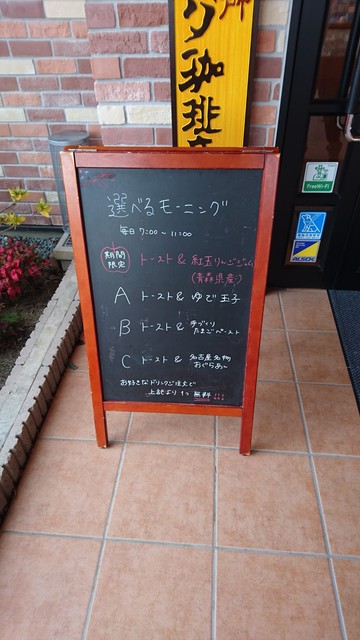 珈琲
選べるモーニング
毎日 7:00 ~ 11:00
期間
限定
トースト & 紅玉りんごジャム
(青森県産)
A トースト & ゆで玉子
B トースト & 手づくり
たまごペースト
C トースト & 名古屋名物
おぐらあん
お好きなドリンクご注文で
上記より1つ 無料!!!
FreeWi-Fi
ALSOK